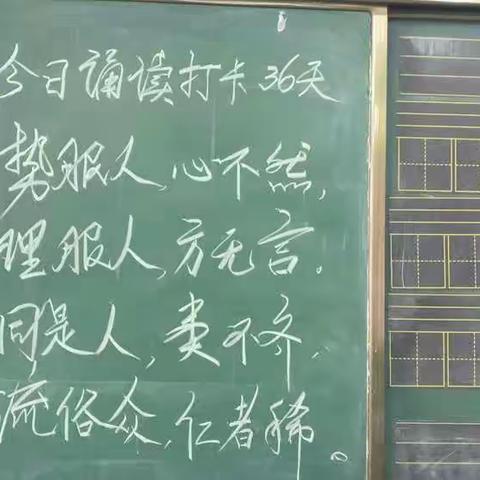 今日诵读打卡36天
势服人,心不然,
理服人,方无言.
同是人,类不齐,
流俗众,仁者稀。